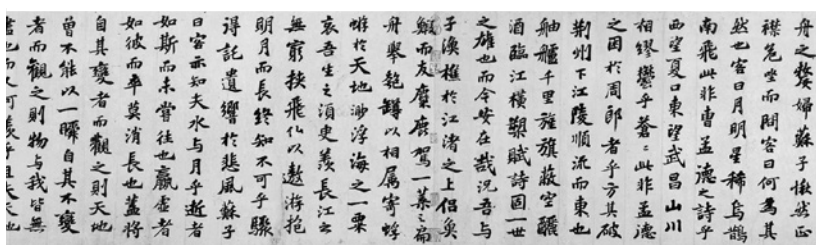 舟之嫠婦蘇子愀然正
襟危坐而問客曰何爲其
然也客曰月明星稀烏鵲
南飛此非曹孟德之詩乎
西望夏口東望武昌山川
相繆鬱乎蒼〻此非孟德
之困於周郎者乎方其破
荊州下江陵順流而東也
舳艫千里旌旗蔽空釃
酒臨江橫槊賦詩固一世
之雄也而今安在哉況吾与
子漁樵於江渚之上侶魚
鰕而友麋鹿駕一葉之扁
舟舉匏罇以相屬寄蜉
蝣於天地渺浮海之一粟
哀吾生之須臾羨長江之
無窮挾飛仙以遨游抱
明月而長終知不可乎驟
得託遺響於悲風蘇子
曰客亦知夫水与月乎逝者
如斯而未嘗往也贏虛者
如彼而卒莫消長也蓋將
自其變者而觀之則天地
曾不能以一瞬自其不變
者而觀之則物与我皆無
盡也而又何羨乎且夫天地